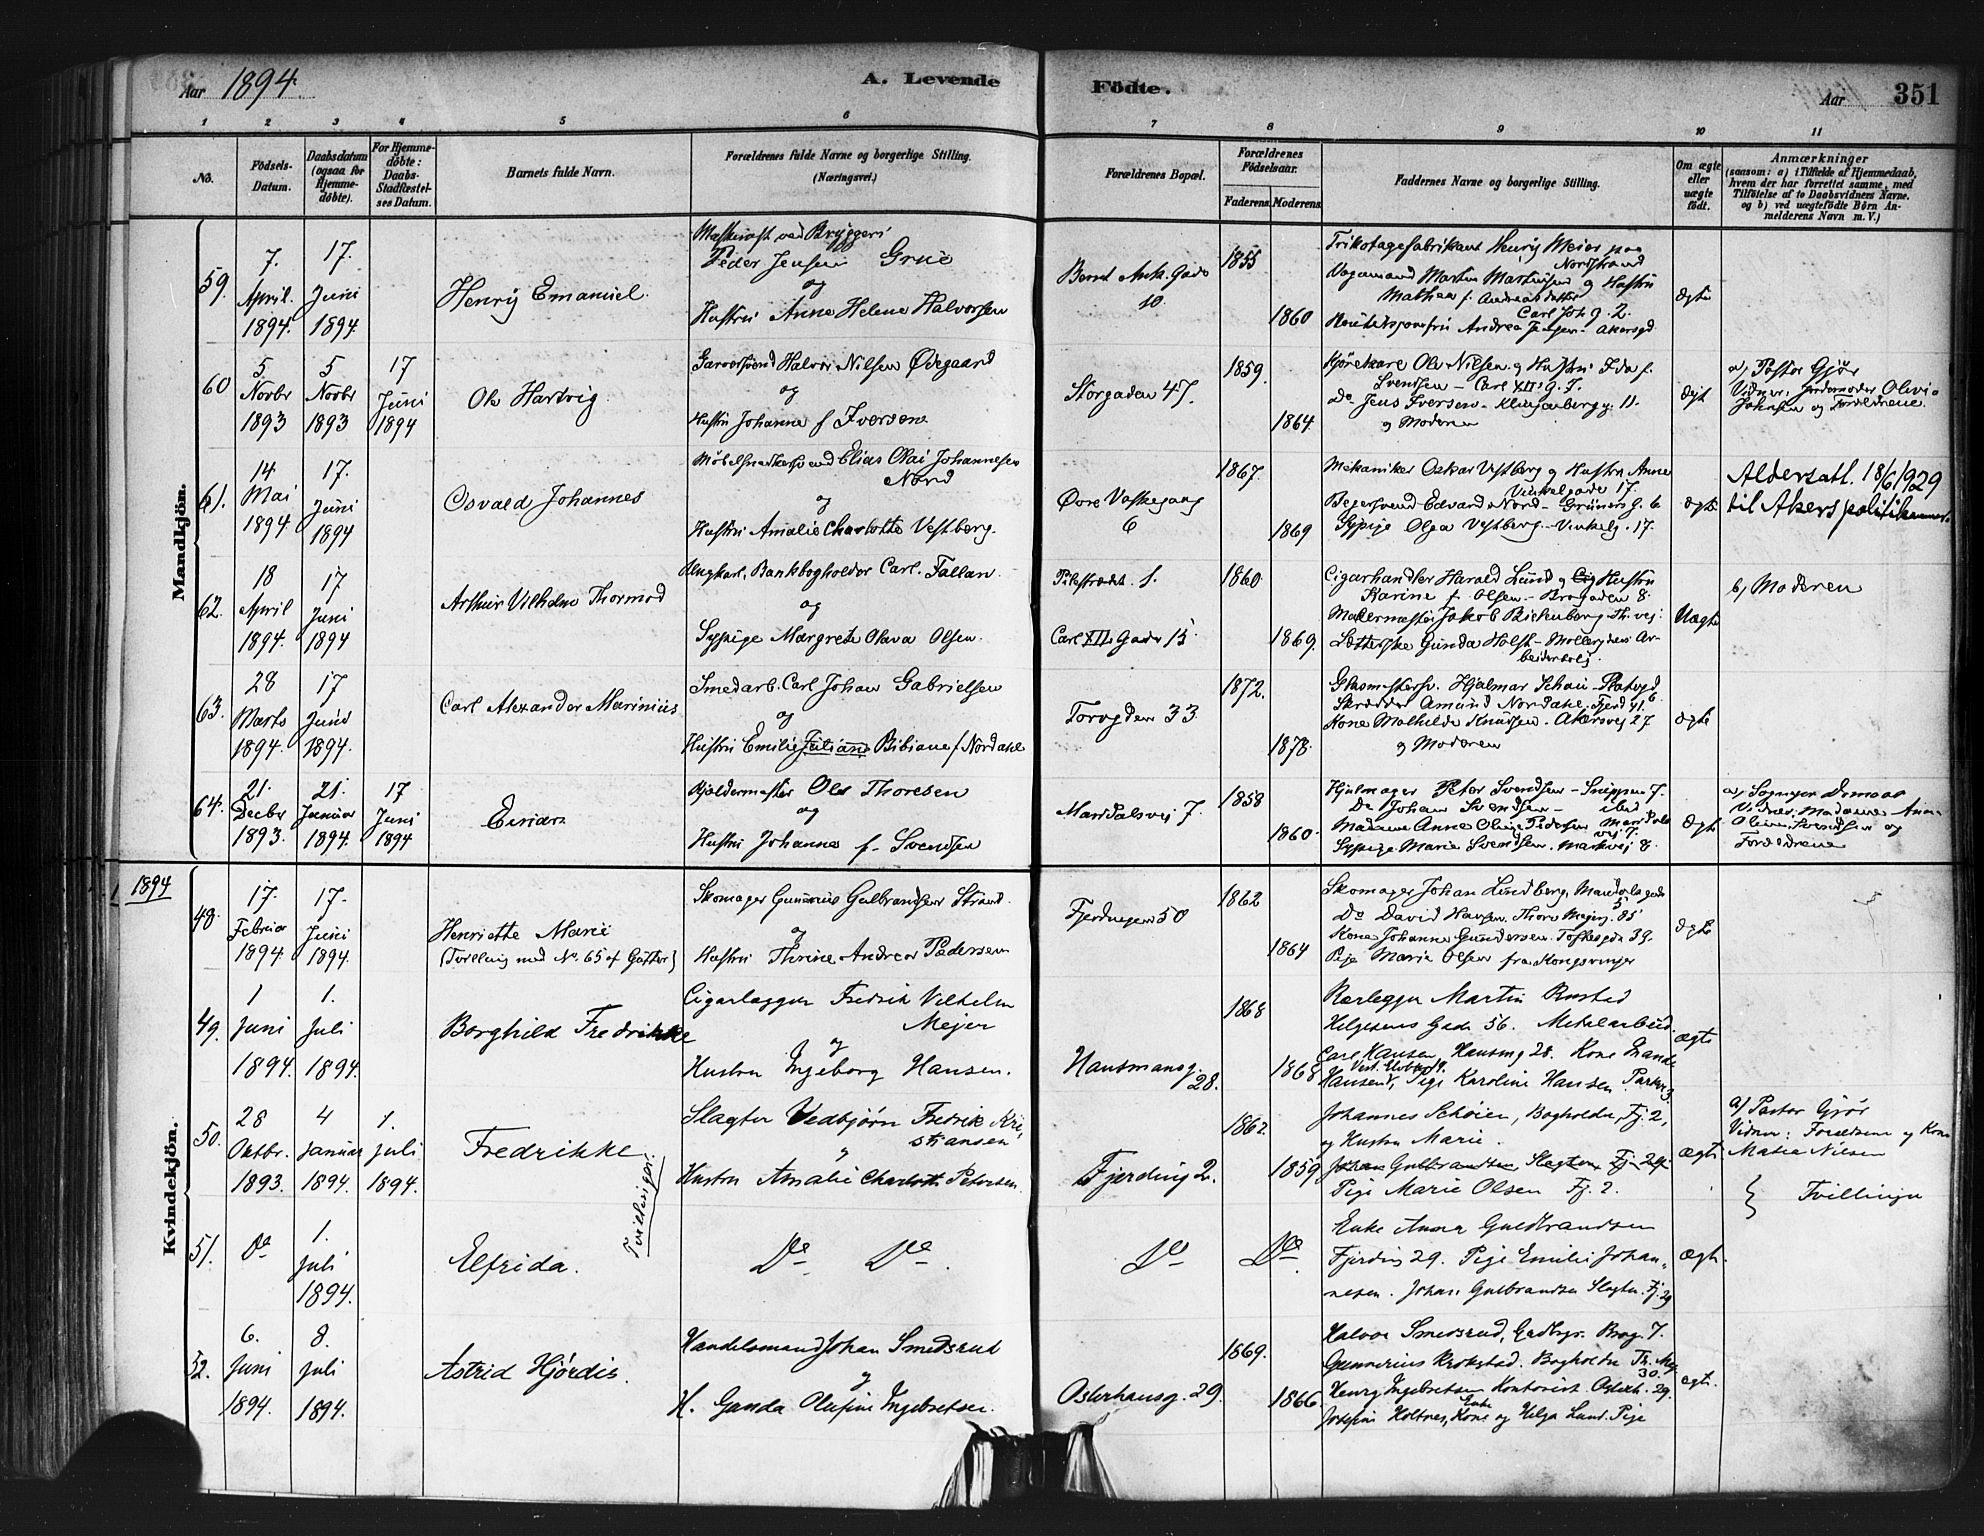 Aar 1894. A. Levende Födte. Aar 351
1 2 3 4 5 6 7 8 9 10 11
No.
Födsels-Datum.
Daabsdatum (ogsaa for Hjemme-döbte).
For Hjemme-döbte: Daabs-Stadfæstel-ses Datum.
Barnets fulde Navn.
Forældrenes fulde Navne og borgerlige Stilling. (Næringsvei.)
Forældrenes Bopæl.
Forældrenes Födselsaar.
Faderens. Moderens.
Faddernes Navne og borgerlige Stilling.
Om ægte eller uægte födt.
Anmærkninger
(saasom: a) i Tilfælde af Hjemmedaab, hvem der har forrettet samme, med Tilföielse af to Daabsvidners Navne. og b) ved uægtefödte Börn An-melderens Navn m. V.)
Mandkjön.
59. 7. April. 1894.
17. Juni 1894.
Henry Emanuel.
Maskinist ved Bryggeri
Peder Jensen Grue
og
Hustru Anne Helene Halvorsen
Bernt Ank. Gade
10.
1855
1860
Trikotagefabrikant Henrij Meier paa
Nordstrand
Vognmand Martin Martinsen og Hustru
Mathea f. Andreasdatter
Carl Joh. g. 2.
Andrea Akersgd.
ægte
60 5 Novbr 1893
5 Novbr 1893
17 Juni 1894
Ole Hartvig.
Garversvend Halvor Nilsen Ødegaard
og
Hustru Johanne f Iversen
Storgaden 47.
1859.
1864.
Kjörekare Ole Nilsen og Hustru Ida f.
Svendsen - Carl XII's g. 7.
Do Jens Iversen - Klingenberg g. 11.
og Moderen
ægt
a) Pastor Gjör
Vidner: Jordemoder Olivia
Johnsen og Forældrene.
61. 14 Mai 1894
17. Juni 1894
Osvald Johannes
Möbelsnedkersvend Elias Olai Johannesen
Nord
og
Hustru Amalie Charlotte Vestberg.
Övre Vaskegang
6
1867.
1869
Mekaniker Oskar Vestberg og Hustru Anne
Vinkelgade 17.
Edvard Nord - Grüners g. 6
Sypige Olga Vestberg - Vinkelg. 17.
ægte
Aldersatt. 18/6 1929
til Akers politikammer
62. 18 April 1894.
17 Juni 1894
Arthur Vilhelm Thormod
Ungkarl, Bankbogholder Carl. Fallan.
og
Sypige Margrete Olava Olsen.
Pilestrædet 1.
Carl XIIs Gade 15
1860.
1869.
Cigarhandler Harald Lund og Hustru
Karine f Olsen - Brogaden 8.
Malermester Jakob
Gunda Holst - Möllergadens Ar-
beiderbolig.
Uægte
b) Moderen
63. 28 Marts 1894.
17 Juni 1894.
Carl Alexander Marinius
Smedarb. Carl Johan Gabrielsen
og
Hustru Emilie Juliane Bibiane f Nordahl
Torvgden 33
1872.
1878.
Glasmestersv. Hjalmar
Skrædder Amund Nordahl. Fjerd 41.
Kone Mathilde Knudsen. Akersvej 27
og Moderen
ægte
64. 21. Decbr 1893.
21. Januar 1894.
17 Juni 1894
Einar
Ole Thoresen
og
Hustru Johanne f. Svendsen
Maridalsvej 7.
1858
1860.
Hjulmager Peter Svendsen - Snippen 7.
Do Johan Svendsen - ibid
Madame Anne Oline Pedersen Maridals
vej 7.
Sypige Marie Svendsen. Markvej 8.
ægte
a) Sogneprest
Vidner: Madame Anne
Oline Svendsen og
Forældrene
1894
Kvindekjön.
48. 17. Februar 1894.
17. Juni 1894.
Henriette Marie
(Tvilling med No. 65 af Gutter)
Skomager Gunerius Gulbrandsen Strand.
og
Hustru Thrine Andrea Pedersen
Fjerdingen 50
1862
1864
Skomager Johan Lundberg, Maridalsgade
5
Do David Hansen. Thorv. Mejersg. 85
Kone Johanne Gundersen. Toftesgde 39.
Pige Marie Olsen fra Kongsvinger
ægte
49. 1 Juni 1894.
1. Juli 1894.
Borghild Fredrikke
Cigarlægger Fredrik Vilhelm
Mejer
og
Hustru Ingeborg Hansen.
Hausmansg.
28.
1868
1868
Rørlegger Martin Rustad
Helgesens Gade 56. Metalarbeid.
Carl Hansen, Hausmg 28. Kone
Hansen, Pige Karoline Hansen.
ægte
50. 28 Oktbr. 1893.
4 Januar 1894.
1. Juli 1894.
Fredrikke
Tvillinger.
Slagter Vedbjørn Fredrik Kri-
stiansen
og
Hustru Amalie Charlotte Petersen
Fjerding 2.
1862.
1859
Johannes Schøien, Bogholder, Fj. 2,
og Hustru Marie.
Johan Gulbrandsen Slagter, Fj. 29.
Pige Marie Olsen Fj. 2.
ægte
a) Pastor Gjör
Vidner: Forældrene og Kone
Matea Nilsen
} Tvillinger
51. Do
1. Juli 1894.
Elfrida.
Do Do
Do
Do
Enke Anna Guldbrandsen
Fjerding 29. Pige Emilie Johan-
nesen. Johan Gulbrandsen Slagter. Fj. 29
ægte
52. 6. Juni 1894.
8. Juli 1894.
Astrid Hjördis.
Handelsmand Johan Smedsrud
og
H. Ganda Olufine Ingebretsen.
Osterhausg. 29.
1869.
1866.
Halvor Smedsrud, Brog. 7.
Gunnerius Krokstad. Bogholder Th. Mej.
30.
Henry Ingebretsen Kontorist Osterh. 29.
Josefine Holtnes, Enke Kone og Helga Lund. Pige
ægte.